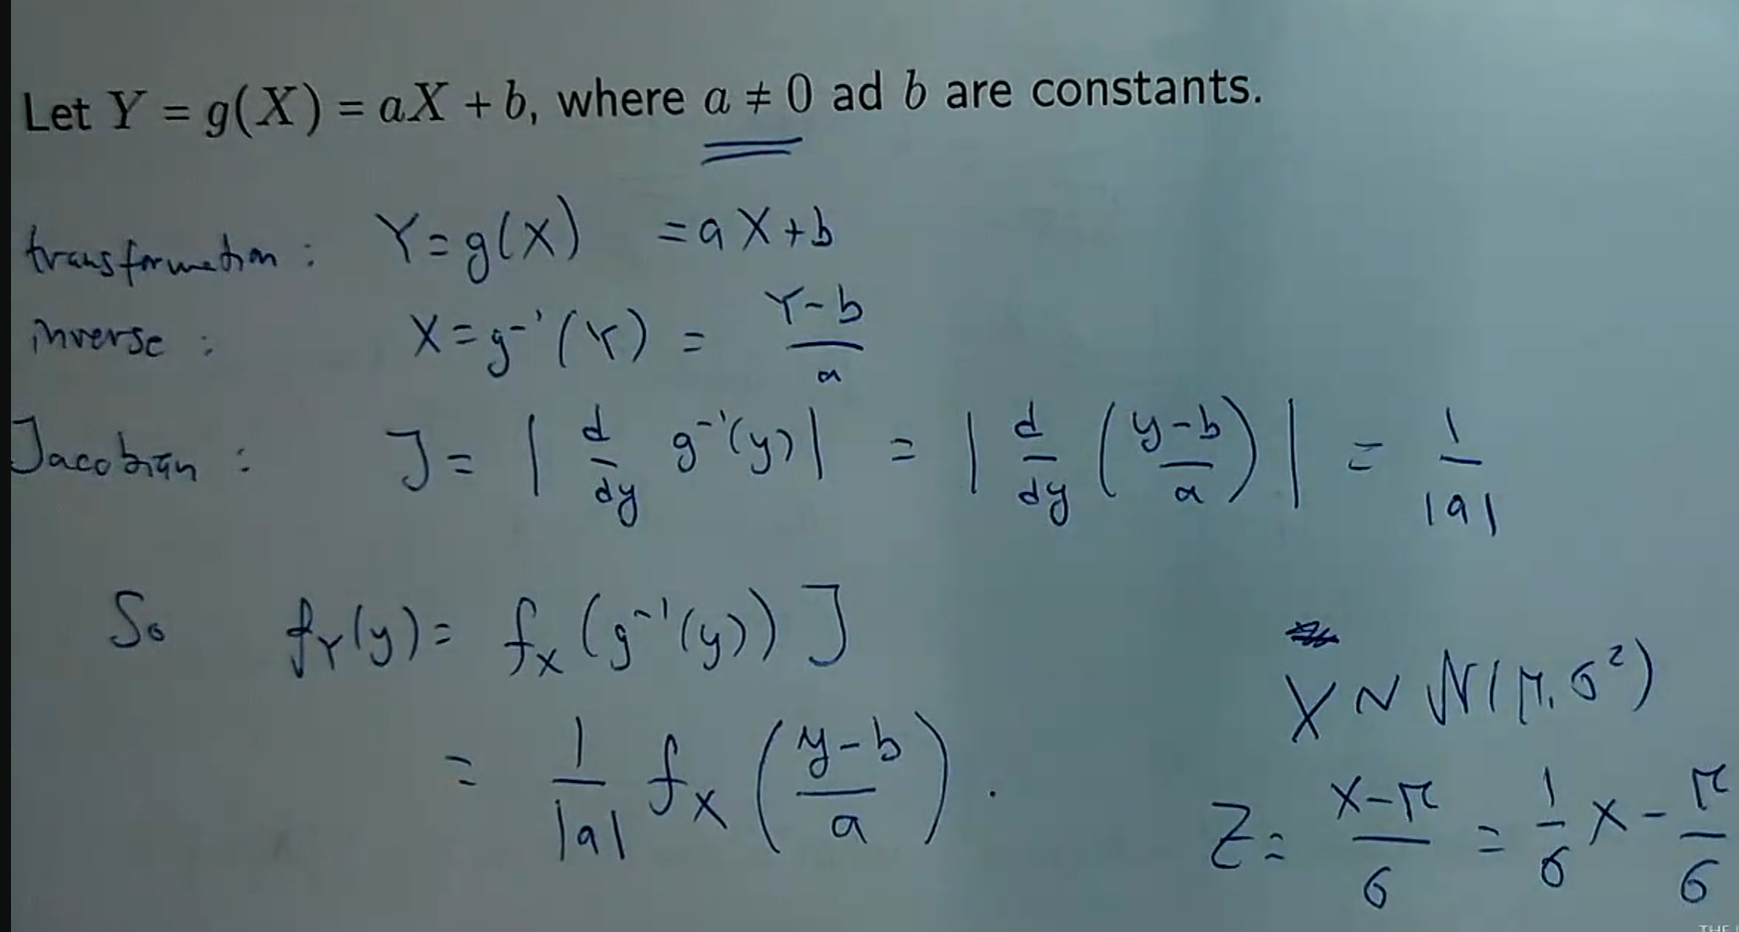 Let Y = g(X) = aX + b, where a ≠ 0 ad b are constants.
transformation : Y = g(X) = aX + b
inverse : X = g⁻¹(Y) = (Y - b)/a
Jacobian : J = | d/dy g⁻¹(y) | = | d/dy ((y - b)/a) | = 1/|a|
So f_Y(y) = f_X(g⁻¹(y)) J
= 1/|a| f_X((y - b)/a) .
X ~ N(μ, σ²)
Z = (X - μ)/σ = 1/σ X - μ/σ